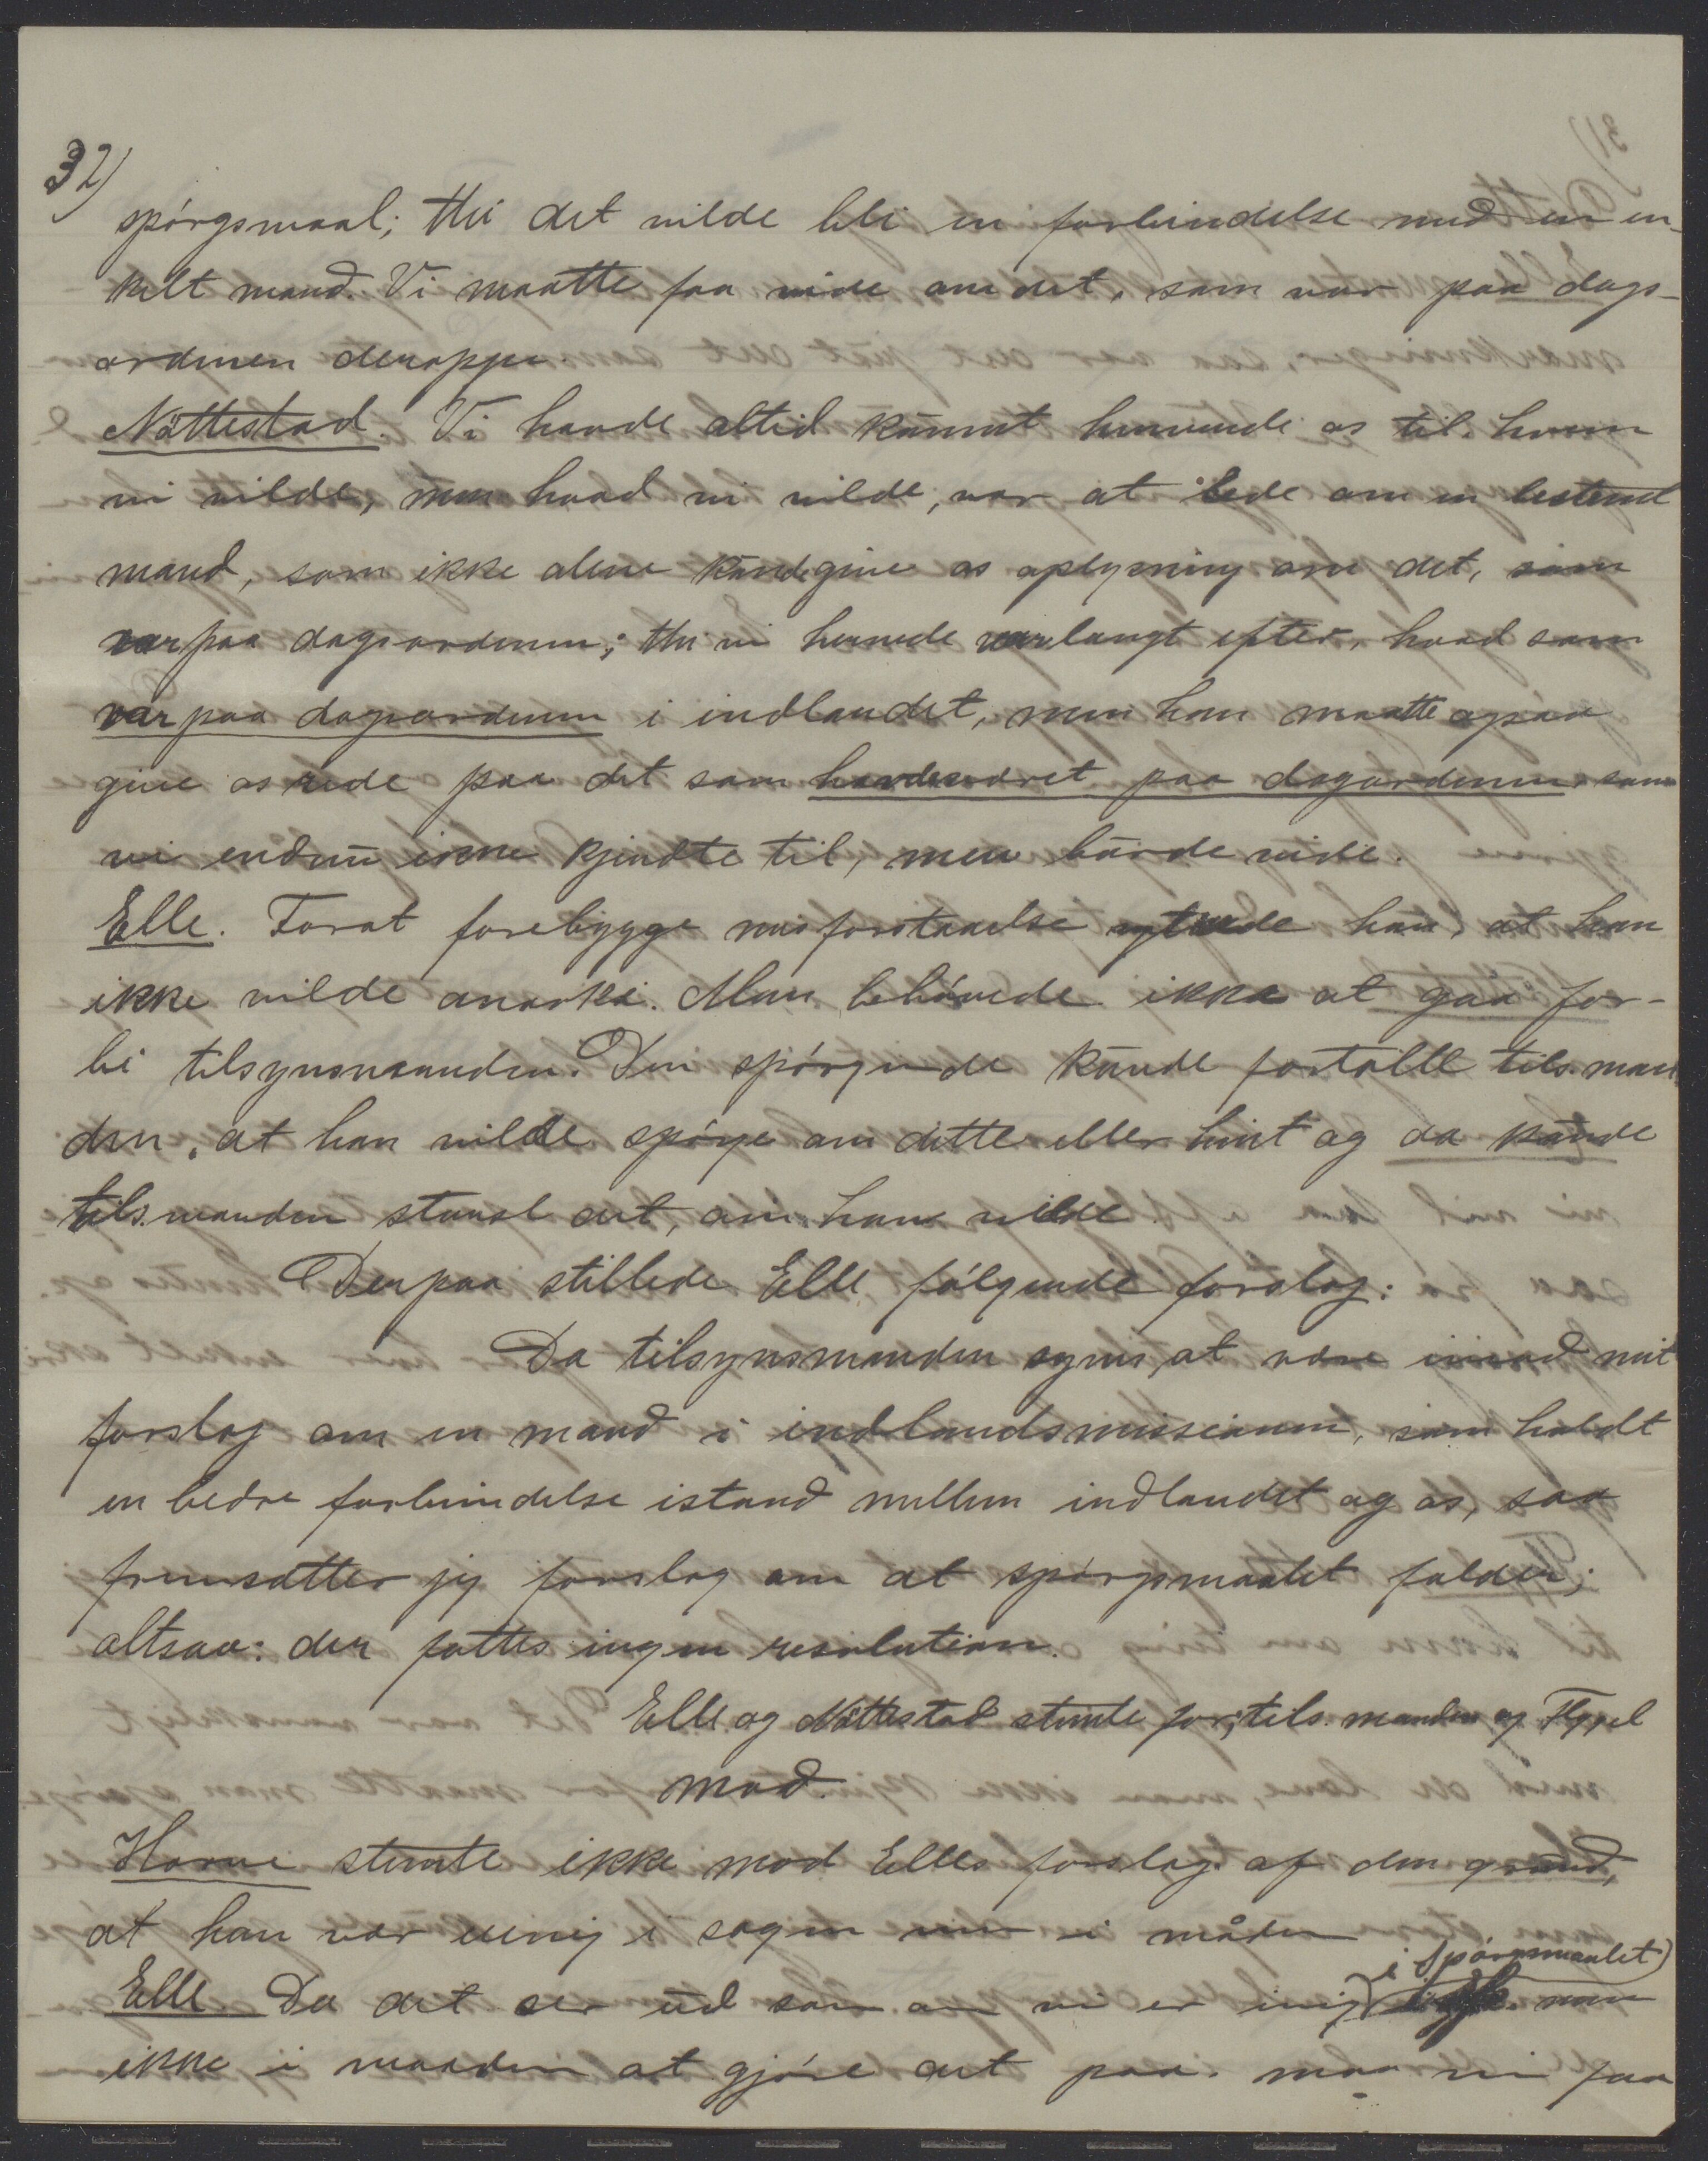 32)
spórgsmaal; thi det vilde bli en forbindelse med en en-
kelt mand. Vi maatte faa vide om det, som var paa dags-
ordenen deroppe
Nöttestad. Vi havde altid kunnet henvende os til hvem
vi vilde, men hvad vi vilde, var at bede om en bestemt
mand, som ikke alene kunde give os oplysning om det, som
var paa dagsordenen; thi vi hernede var langt efter, hvad som
var paa dagsordenen i indlandet, men han maatte ogsaa
give os rede paa det som havde været paa dagsordenen som
vi endnu ikke kjendte til, men burde vide.
Elle. Forat forebygge misforstaaelse ytrede han, at han
ikke vilde anarki. Man behóvede ikke at gaa for-
bi tilsynsmanden. Den spórgende kunde fortälle tils.man
den, at han vilde spórge om dette eller hint og da kunde
tils.manden standse det, om han vilde.
Derpaa stillede Elle fólgende forslag:
Da tilsynsmanden synes, at väre imod mit
forslag om en mand i indlandsmissionen, som holdt
en bedre forbindelse istand mellem indlandet og os, saa
fremsätter jeg forslag om at spórgsmaalet falder;
altsaa: der fattes ingen resolution.
Elle og Nöttestad stemte for; tils. manden og
mod.
stemte ikke mod Elles forslag af den grund,
at han var uenig i sagen men i måden
i spórgsmaalet)
Elle. Da det ser ud som om vi er enig) men
ikke i maaden at gjóre det paa. maa vi faa